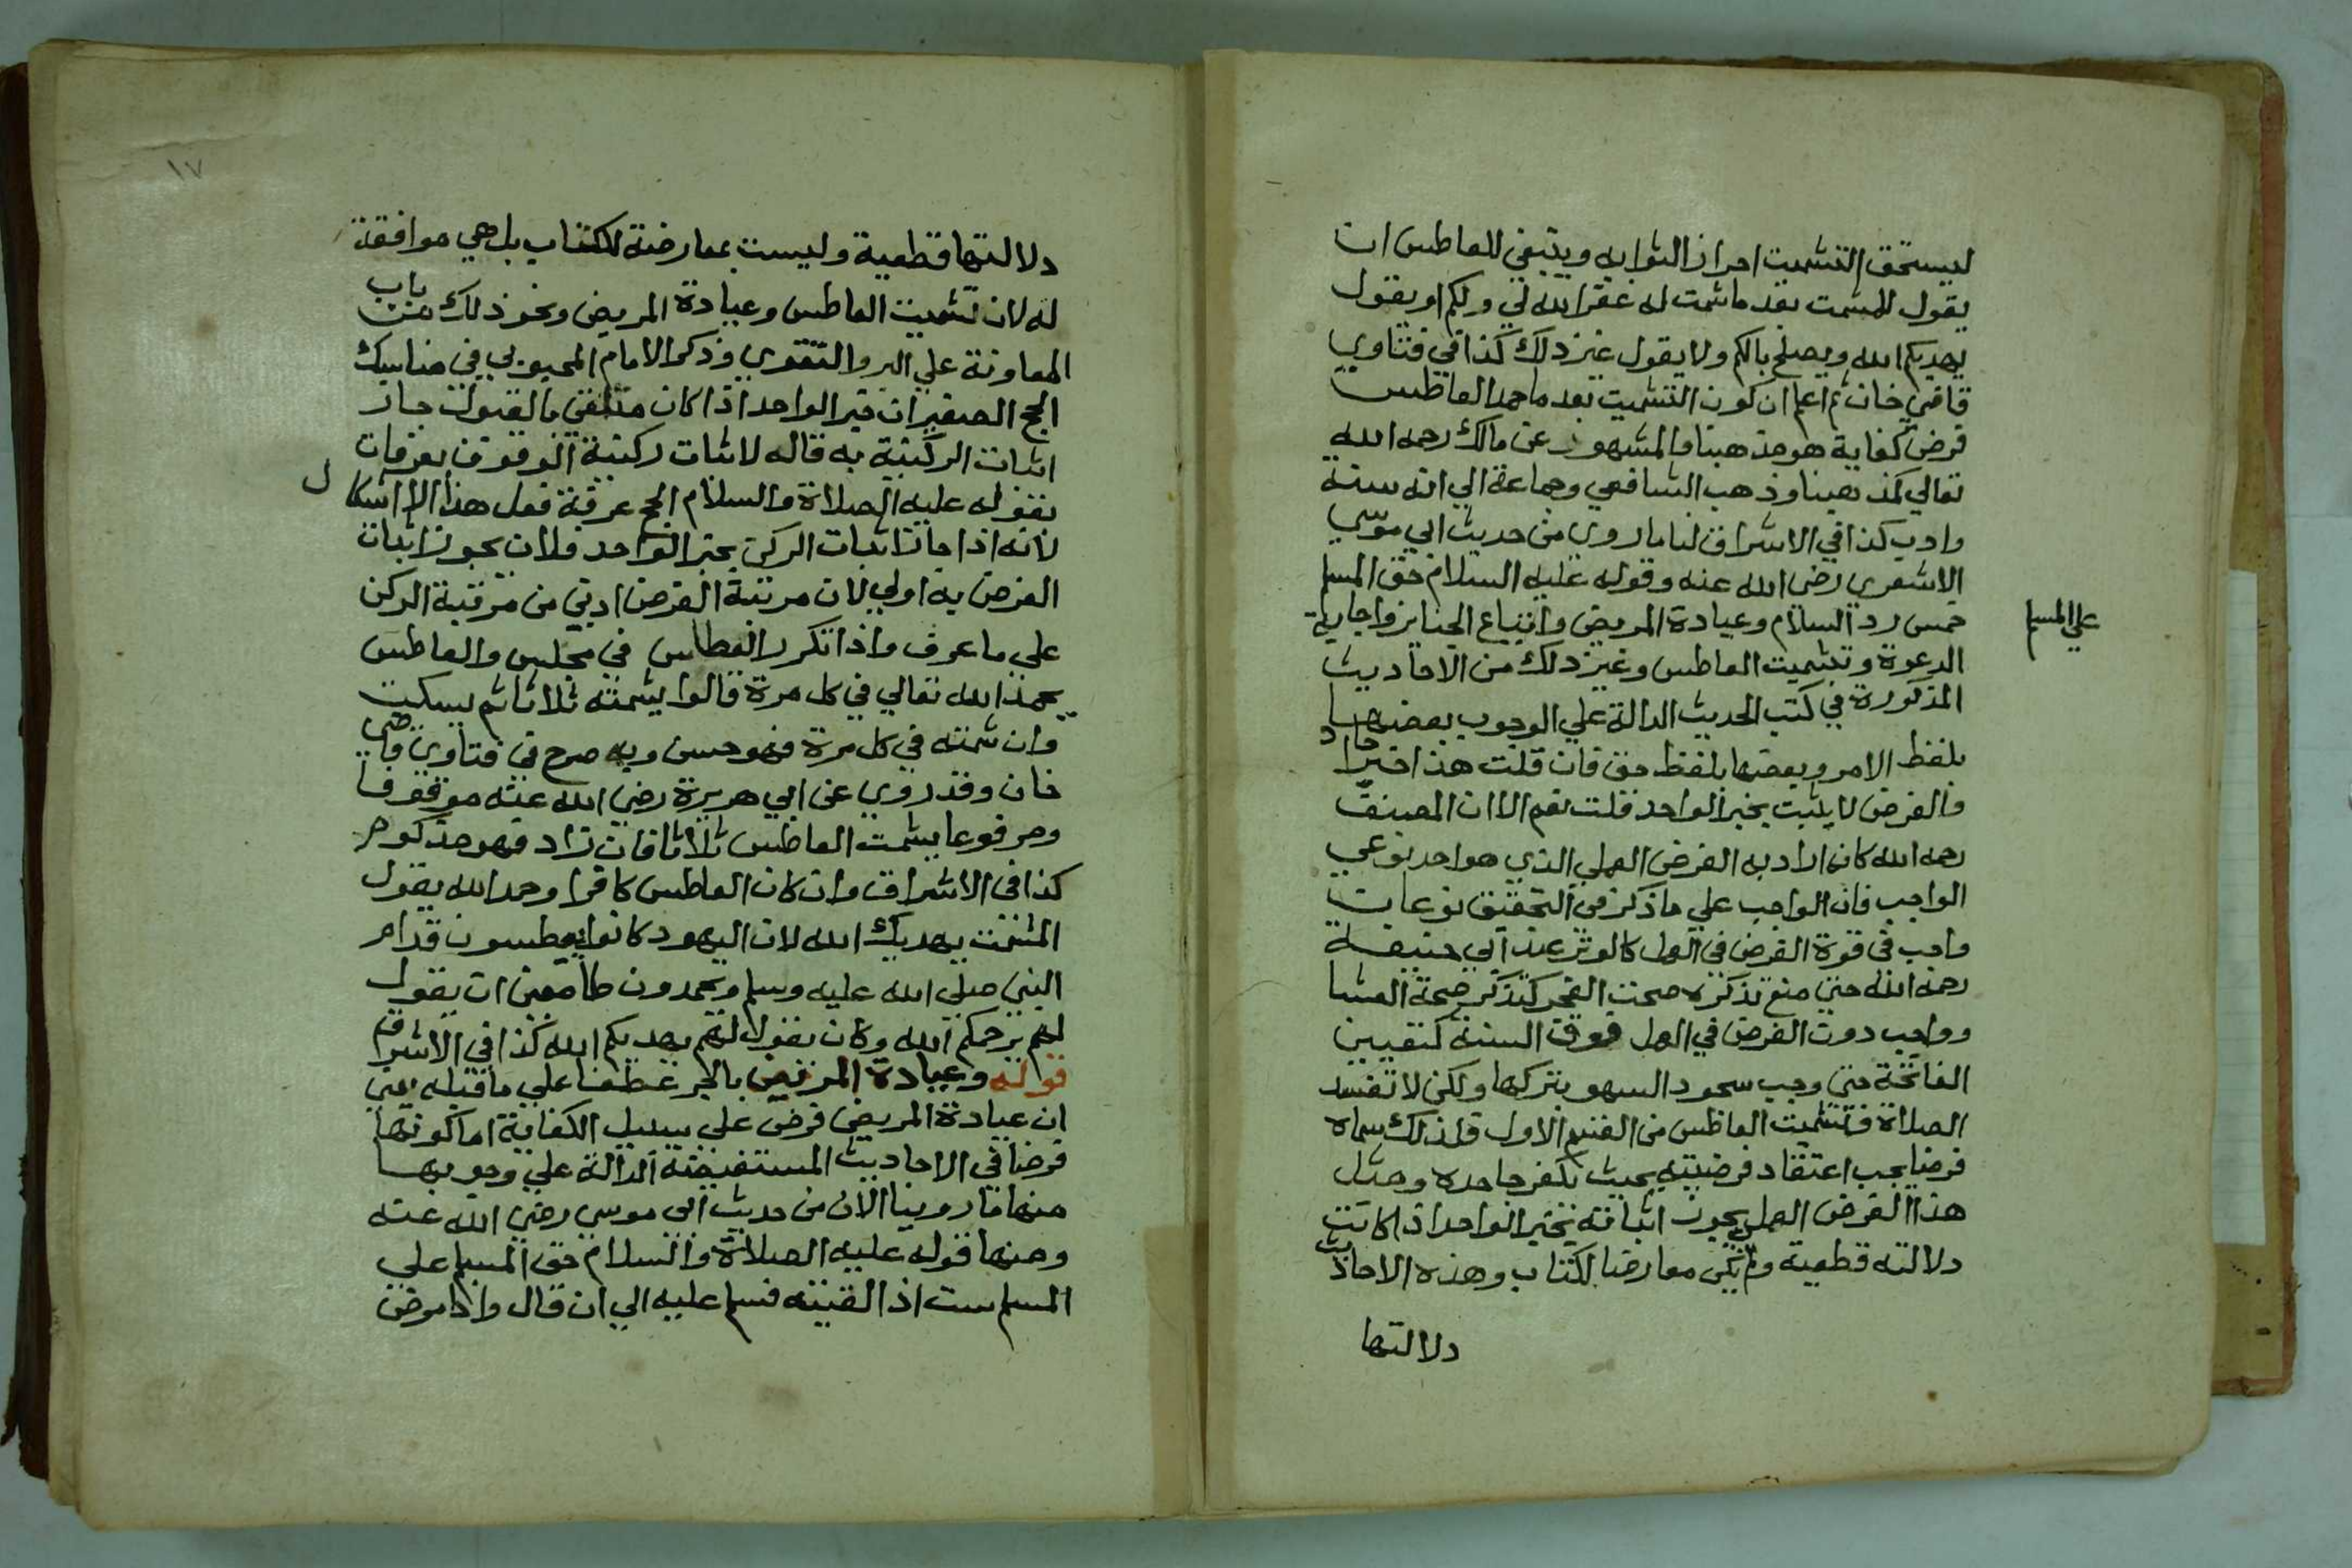 ليستحق التشميت احراز الثوابه وينبغي للعاطس ان
يقول للمشمت بعد ما شمت له غفر الله لي ولكم او يقول
يهديكم الله ويصلح بالكم ولا يقول غير ذلك كذا في فتاوي
قاضي خان ثم اعلم ان كون التشميت بعد ما حمد العاطس
فرض كفاية هو مذهبنا والمشهور عن مالك رحمه الله
تعالي كمذهبنا وذهب الشافعي وجماعة الي انه سنة
وادب كذا في الاشراف لنا ما روي من حديث ابي موسي
الاشعري رضي الله عنه وقوله عليه السلام حق المسلم
علي المسلم
خمس رد السلام وعيادة المريض واتباع الجنايز واجابة
الدعوة وتشميت العاطس وغير ذلك من الاحاديث
المذكورة في كتب الحديث الدالة علي الوجوب بعضها
بلفظ الامر وبعضها بلفظ حق فان قلت هذا خبر احاد
والفرض لا يثبت بخبر الواحد قلت نعم الا ان المصنف
رحمه الله كان اراد به الفرض العملي الذي هو احد نوعي
الواجب فان الواجب علي ما ذكر في التحقيق نوعان
واجب في قوة الفرض في العمل كالوتر عند ابي حنيفة
رحمه الله حتي منع تذكره صحت الفجر كتذكر صحة العشا
وواجب دون الفرض في العمل فوق السنة كتعيين
الفاتحة حتي وجب سجود السهو بتركها ولكن لا تفسد
الصلاة فتشميت العاطس من القسم الاول فلذلك سماه
فرضا يجب اعتقاد فرضيته بحيث يكفر جاحده ومثل
هذا الفرض العملي يجوز اثباته بخبر الواحد اذا كانت
دلالته قطعية ولم يكن معارضا لكتاب وهذه الاحاديث
دلالتها
١٧
دلالتها قطعية وليست بمعارضة للكتاب بل هي موافقة
له لان تشميت العاطس وعيادة المريض ونحو ذلك من باب
المعاونة علي البر والتقوي وذكر الامام المحبوبي في مناسك
الجامع الصغير ان خبر الواحد اذا كان متلقي بالقبول جاز
اثبات الركنية به قاله لاثبات ركنية الوقوف بعرفات
بقوله عليه الصلاة والسلام الحج عرفة فعل هذا لا اشكال
لانه اذا جاز اثبات الركن بخبر الواحد فلان يجوز اثبات
الفرض به اولي لان مرتبة الفرض ادني من مرتبة الركن
علي ما عرف واذا تكرر العطاس في مجلس والعاطس
يحمد الله تعالي في كل مرة قالوا يشمته ثلاثا ثم يسكت
وان شمته في كل مرة فهو حسن وبه صرح في فتاوي قاضي
خان وقد روي عن ابي هريرة رضي الله عنه موقوفا
ومرفوعا يشمت العاطس ثلاثا فان زاد فهو مذكوم
كذا في الاشراف وان كان العاطس كافرا وحمد الله يقول
المشمت يهديك الله لان اليهود كانوا يعطسون قدام
النبي صلي الله عليه وسلم ويحمدون طامعين ان يقول
لهم يرحمكم الله وكان يقول لهم يهديكم الله كذا في الاشراف
قوله وعيادة المريض بالجر عطفا علي ما قبله يعني
ان عيادة المريض فرض علي سبيل الكفاية اما كونها
فرضا في الاحاديث المستفيضة الدالة علي وجوبها
منها ما روينا الان من حديث ابي موسي رضي الله عنه
ومنها قوله عليه الصلاة والسلام حق المسلم علي
المسلم ست اذا لقيته فسلم عليه الي ان قال واذا مرض